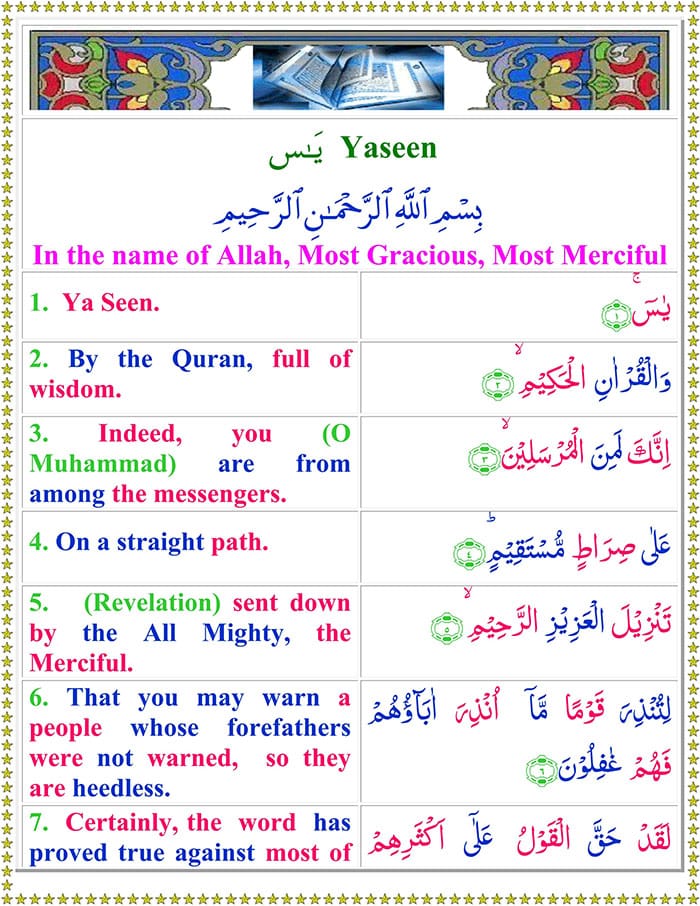 يَـٰسٓ Yaseen
بِسْمِ ٱللَّهِ ٱلرَّحْمَـٰنِ ٱلرَّحِيمِ
In the name of Allah, Most Gracious, Most Merciful
1. Ya Seen.
يٰسٓ ۚ ﴿١﴾
2. By the Quran, full of
wisdom.
وَالْقُرْاٰنِ الْحَكِيْمِ ۙ ﴿٢﴾
3. Indeed, you (O
Muhammad) are from
among the messengers.
اِنَّكَ لَمِنَ الْمُرْسَلِيْنَ ۙ ﴿٣﴾
4. On a straight path.
عَلٰى صِرَاطٍ مُّسْتَقِيْمٍ ؕ ﴿٤﴾
5. (Revelation) sent down
by the All Mighty, the
Merciful.
تَنْزِيْلَ الْعَزِيْزِ الرَّحِيْمِ ۙ ﴿٥﴾
6. That you may warn a
people whose forefathers
were not warned, so they
are heedless.
لِتُنْذِرَ قَوْمًا مَّاۤ اُنْذِرَ اٰبَآؤُهُمْ
فَهُمْ غٰفِلُوْنَ ﴿٦﴾
7. Certainly, the word has
proved true against most of
لَقَدْ حَقَّ الْقَوْلُ عَلٰۤى اَكْثَرِهِمْ